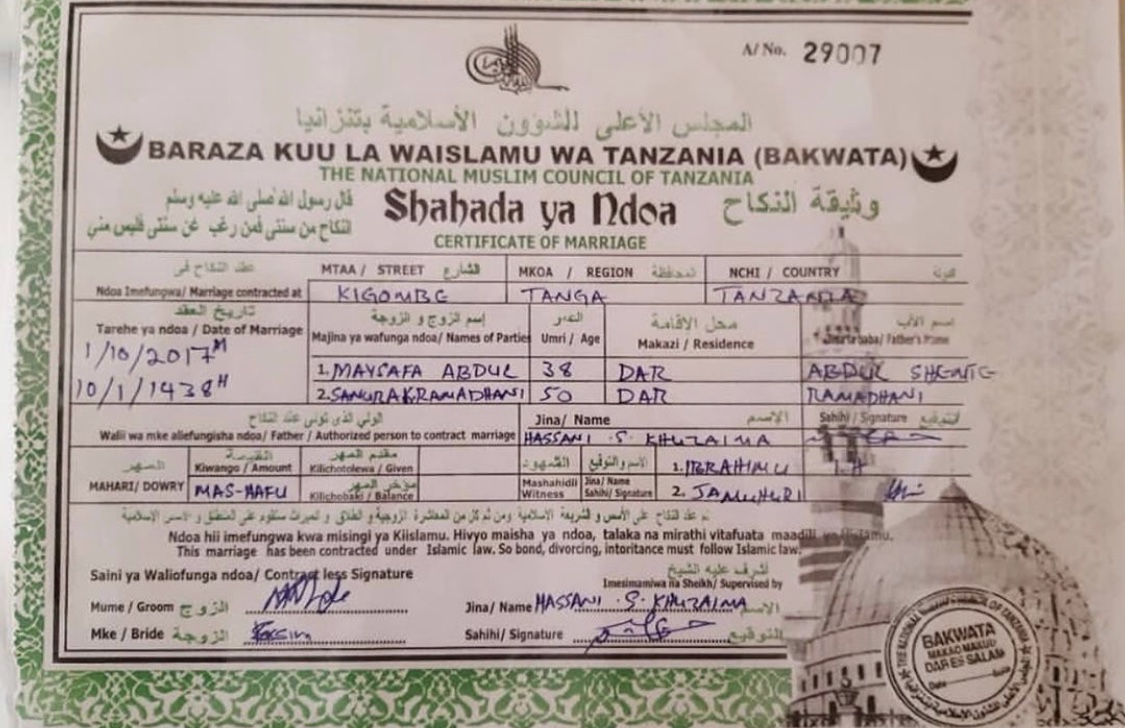 A/No. 29007
المجلس الأعلى للشؤون الأسلامية بتنزانيا
BARAZA KUU LA WAISLAMU WA TANZANIA (BAKWATA)
THE NATIONAL MUSLIM COUNCIL OF TANZANIA
قال رسول الله صلى الله عليه وسلم
النكاح من سنتى فمن رغب عن سنتى فليس منى
Shahada ya Ndoa
وثيقة النكاح
CERTIFICATE OF MARRIAGE
عقد النكاح فى
MTAA / STREET الشارع MKOA / REGION المحافظة NCHI / COUNTRY
Ndoa Imefungwa/ Marriage contracted at KIGOMBE TANGA TANZANIA
تاريخ العقد إسم الزوج و الزوجة محل الأقامة اسم الأب
Tarehe ya ndoa / Date of Marriage Majina ya wafunga ndoa/ Names of Parties Umri / Age Makazi / Residence Father's Name
1/10/2017 M 1. MAYSAFA ABDUL 38 DAR ABDUL
10/1/1438 H 2. RAMADHANI 50 DAR RAMADHANI
Jina/ Name الإسم Sahihi/ Signature التوقيع
Walii wa mke aliefungisha ndoa/ Father / Authorized person to contract marriage HASSANI .S. KHUZAIMA
المهر القيمة مقدم المهر الشهود الاسم والتوقيع
Kiwango / Amount Kilichotolewa / Given 1. IBRAHIMU
MAHARI/ DOWRY MAS-HAFU مؤخر المهر Kilichobaki / Balance Mashahidi Witness Jina/ Name Sahihi/ Signature 2. JAMUHURI
Ndoa hii imefungwa kwa misingi ya Kiislamu. Hivyo maisha ya ndoa, talaka na mirathi vitafuata maadili ya Kiislamu.
This marriage has been contracted under Islamic law. So bond, divorcing, intoritance must follow Islamic law.
أشرف عليه الشيخ
Saini ya Waliofunga ndoa/ Contract less Signature Imesimamiwa na Sheikh/ Supervised by
Mume / Groom الزوج Jina/ Name HASSANI .S. KHUZAIMA الإسم
Mke / Bride الزوجة Sahihi/ Signature التوقيع
THE NATIONAL MUSLIM COUNCIL OF TANZANIA
BAKWATA
MAKAO MAKUU
DAR ES SALAM
Date